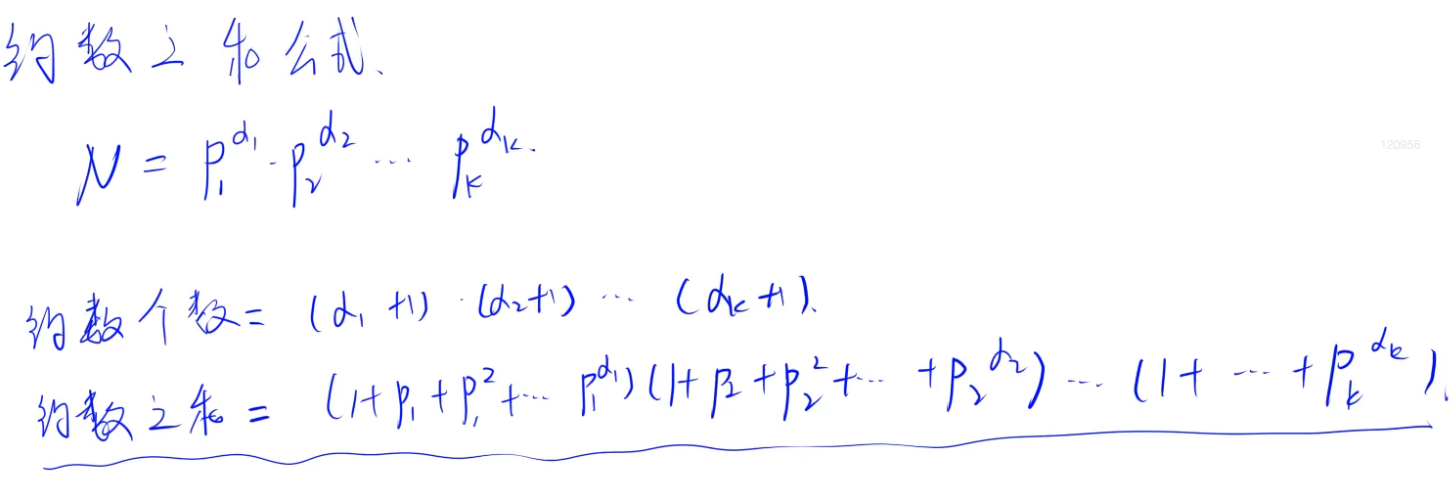 约数之和公式.
N = p₁^α₁ · p₂^α₂ ... p_k^α_k.
120956
约数个数 = (α₁+1) · (α₂+1) ... (α_k+1).
约数之和 = (1+p₁+p₁²+... p₁^α₁)(1+p₂+p₂²+... +p₂^α₂) ... (1+ ... +p_k^α_k).